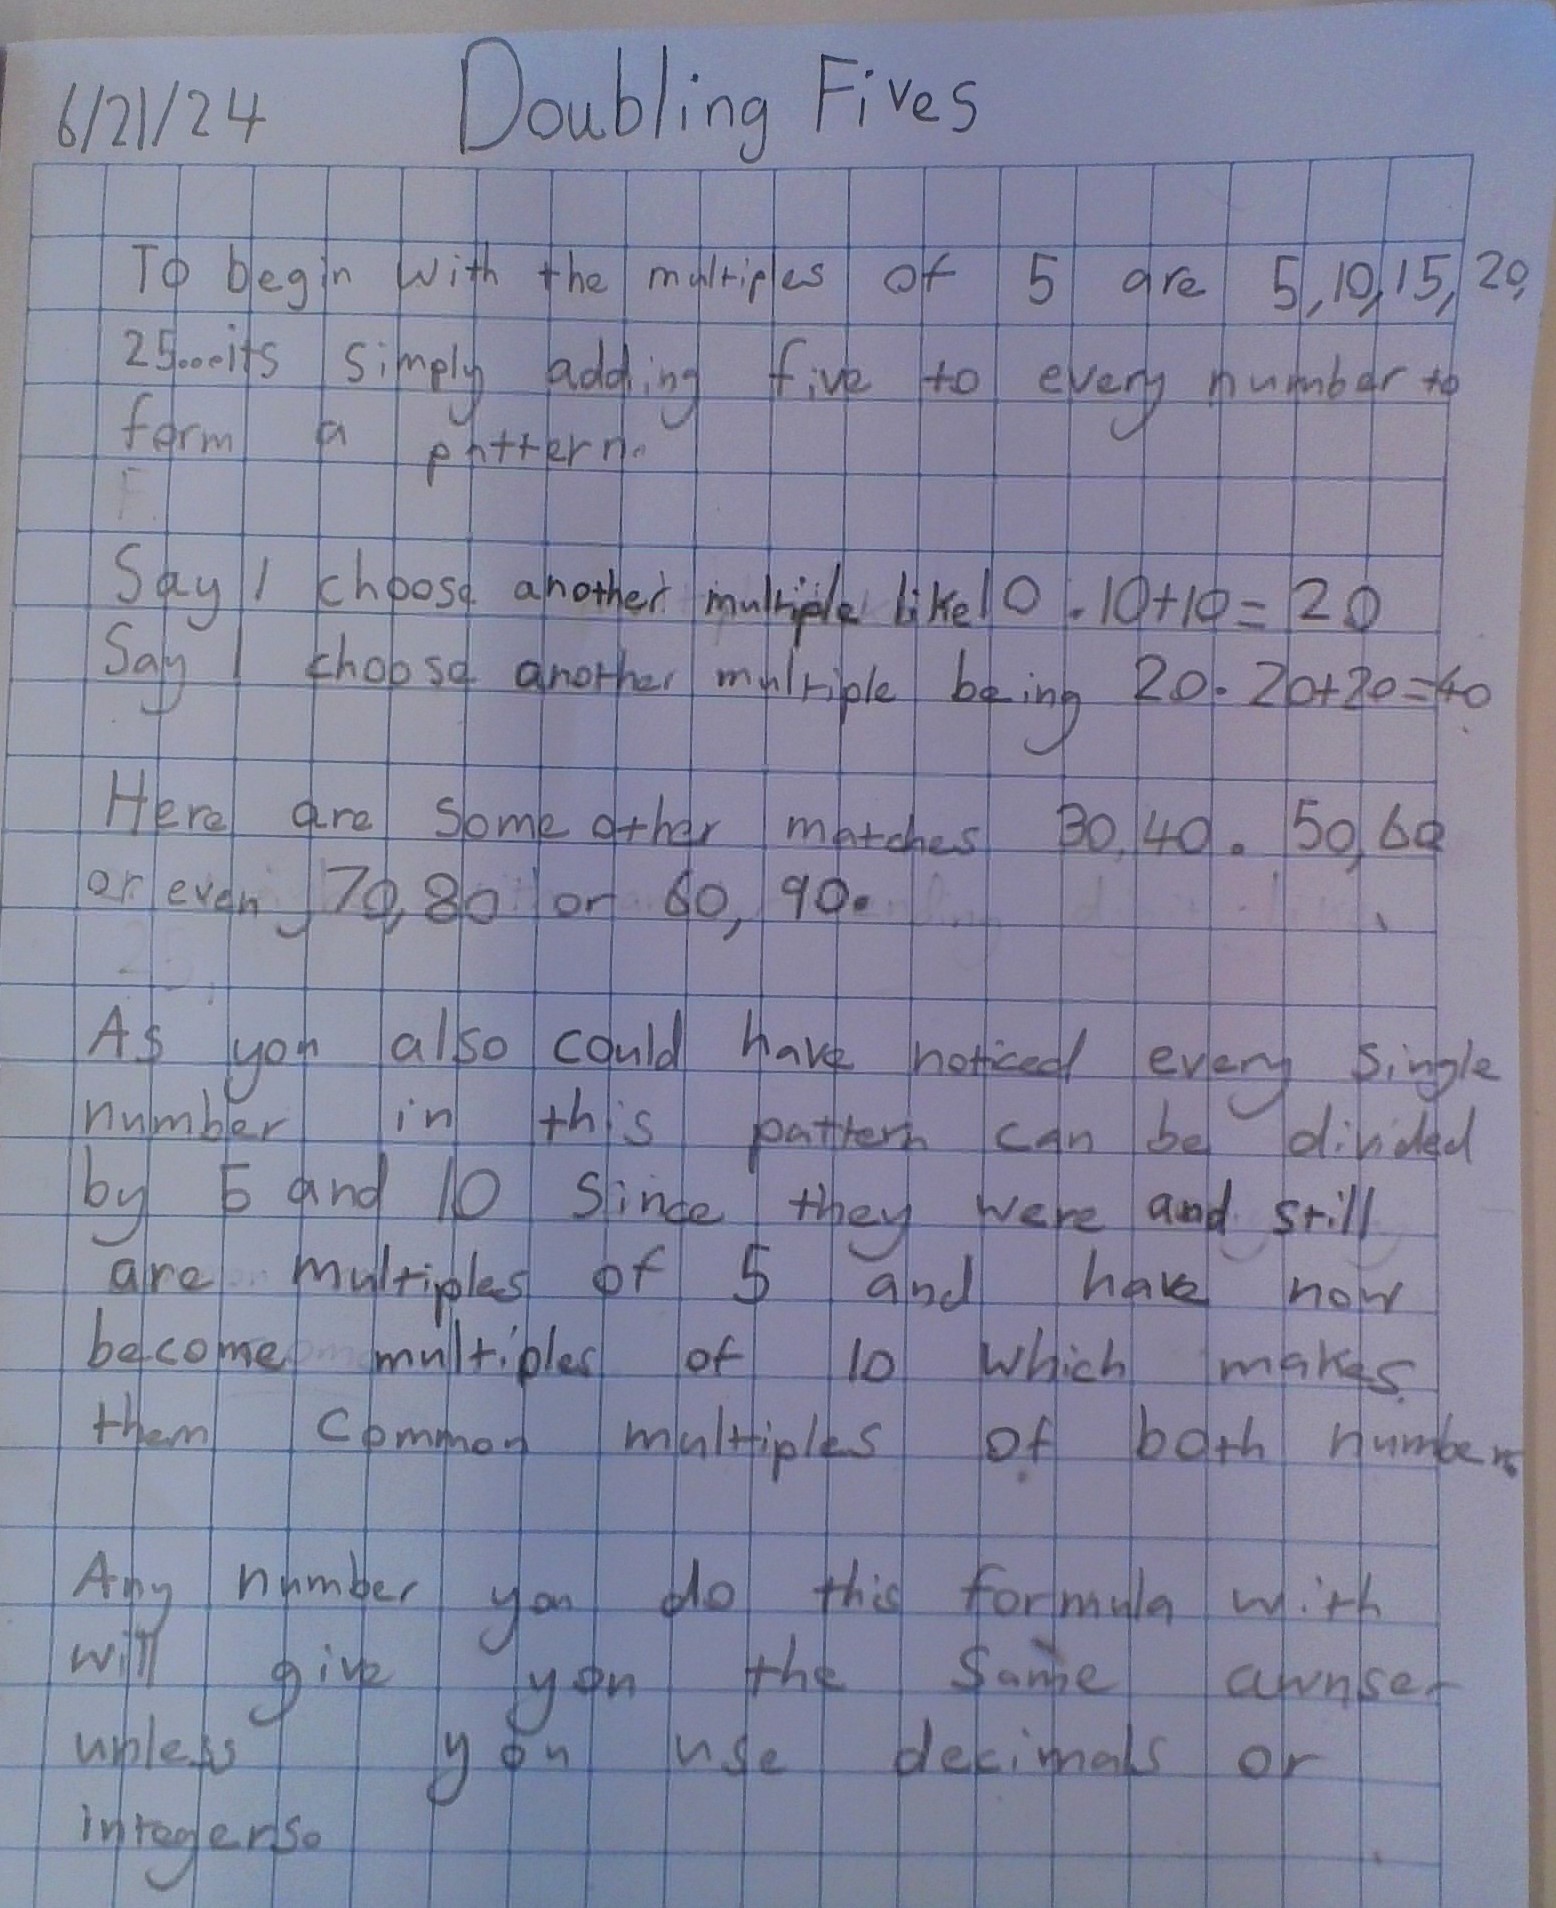 6/21/24 Doubling Fives
To begin with the multiples of 5 are 5,10,15,20,
25...its simply adding five to every number to
form a pattern.
F.
Say I choose another multiple like 10. 10+10=20
Say I choose another multiple being 20. 20+20=40
Here are some other matches 30,40. 50,60
or even 70,80 or 60, 90.
25,
As you also could have noticed every single
number in this pattern can be divided
by 5 and 10 since they were and still
are multiples of 5 and have now
become multiples of 10 which makes
them common multiples of both numbers.
Any number you do this formula with
will give you the same awnser
unless you use decimals or
integers.